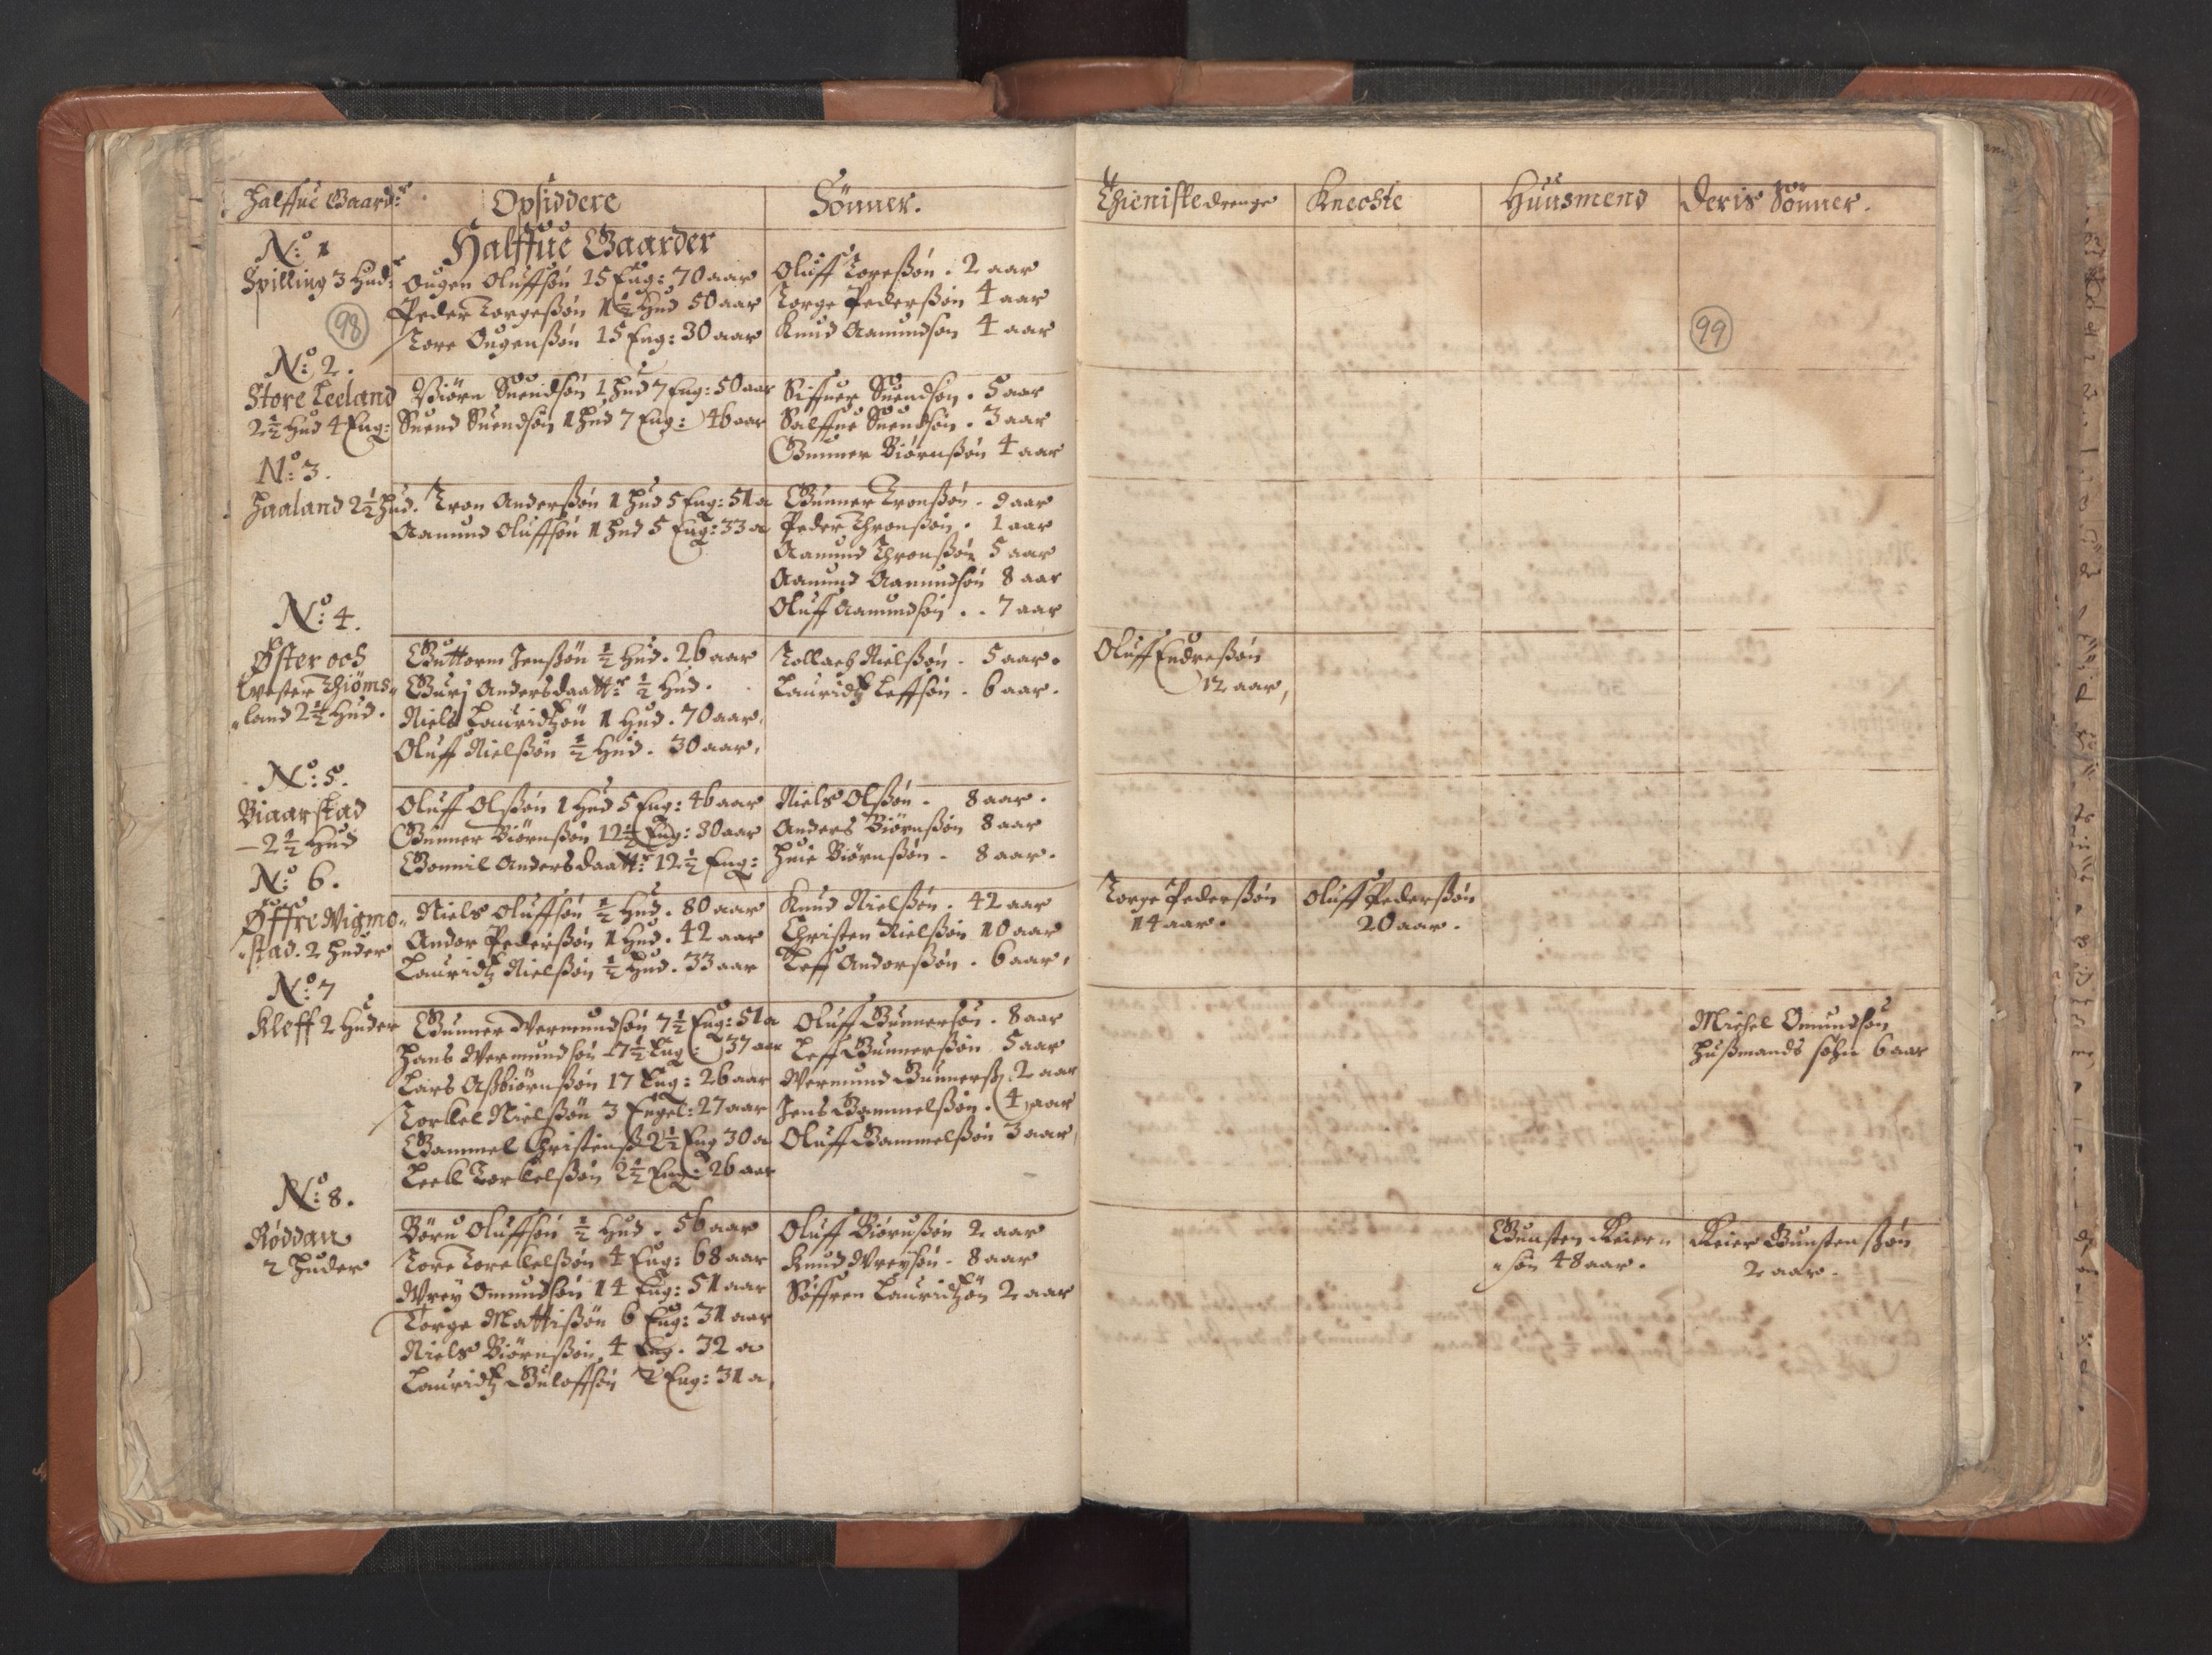 Halffue Gaard:r
Opsiddere
Sønner.
Halffue Gaarder
No: 1
Spilling 3 Hud:r
98
Ougen Oluffsøn 15 Eng: 70 aar
Peder Torgeßøn 1 1/2 Hud 50 aar
Tore Ougenßøn 15 Eng: 30 aar
Oluff Toreßøn. 2 aar
Torge Pederßøn 4 aar
Knud Aamundsøn 4 aar
No: 2.
Store Leeland
2 1/2 Hud 4 Eng:
Biørn Suendsøn 1 Hud 7 Eng: 50 aar
Suend Suendsøn 1 Hud 7 Eng: 46 aar
Siffuer Suendsøn. 5 aar
Salffue Suendsøn. 3 aar
Gunner Biørnßøn 4 aar
No: 3.
Haaland 2 1/2 Hud.
Tron Anderßøn 1 Hud 5 Eng: 51 a
Aamund Oluffsøn 1 Hud 5 Eng: 33 a
Gunner Tronßøn. 9 aar
Peder Thronßøn. 1 aar
Aamund Thronßøn 5 aar
Aamund Aamundsøn 8 aar
Oluff Aamundsøn.. 7 aar
No: 4.
Øster och
Wester Thiöms
land 2 1/2 Hud.
Guttorm Jenßøn 1/2 Hud. 26 aar
Guri Andersdaatt:r 1/2 Hud.
Niels Lauridtzøn 1 Hud. 70 aar.
Oluff Nielßøn 1/2 Hud. 30 aar,
Tollach Nielßøn. 5 aar.
Lauridtz Leffsøn. 6 aar.
No: 5.
Biaarstad
2 1/2 Hud
Oluff Olßøn 1 Hud 5 Eng: 46 aar
Gunner Biørnßøn 12 1/2 Eng: 80 aar
Gonnil Andersdaatt:r 12 1/2 Eng:
Niels Olßøn. 8 aar.
Anders Biørnßøn 8 aar
Huie Biørnßøn. 8 aar.
No: 6.
Øffre Vigmo
stad. 2 Huder
Niels Oluffsøn 1/2 Hud. 80 aar
Andor Pederßøn 1 Hud. 42 aar
Lauridtz Nielßøn 1/2 Hud. 33 aar
Knud Nielßøn. 42 aar
Christen Nielßøn 10 aar
Leff Andorßøn. 6 aar,
No: 7
Kleff 2 Huder
Gunner Wermundsøn 7 1/2 Eng: 51 a
Hans Wermundsøn 7 1/2 Eng: 37 aar
Lars Aßbiørnßøn 17 Eng: 26 aar
Torkel Nielßøn 3 Engel: 27 aar
Gammel Christenß 2 1/2 Eng 30 a
Leell Torkelßøn 2 1/2 Eng: 26 aar
Oluff Gunnersøn. 8 aar
Leff Gunnerßøn 5 aar
Wermund Gunnerß 2 aar
Jens Gammelßøn. 4 aar
Oluff Gammelßøn 3 aar,
No: 8.
Röddan
2 Huder
Börn Oluffsøn 1/2 Hud. 56 aar
Tore Torkelsøn 4 Eng: 68 aar
Wrey Omundsøn 14 Eng: 51 aar
Torge Mattisøn 6 Eng: 31 aar
Niels Biørnßøn 4 Eng. 32 a
Lauridtz Guloffsøn 2 Eng: 31 a,
Oluff Biørnßøn 2 aar
Knud Wreysøn. 8 aar
Söffren Lauridtzøn 2 aar
Thienistedrenge
Knechte
Huusmend
Deris Sønner.
99
Oluff Endreßøn
12 aar,
Torge Pederßøn
14 aar.
Oluff Pederßøn
20 aar.
Michel Omundsøn
Hußmands søhn 6 aar
Gunsten Reier
søn 48 aar.
Reier Gunstenßøn
2 aar.